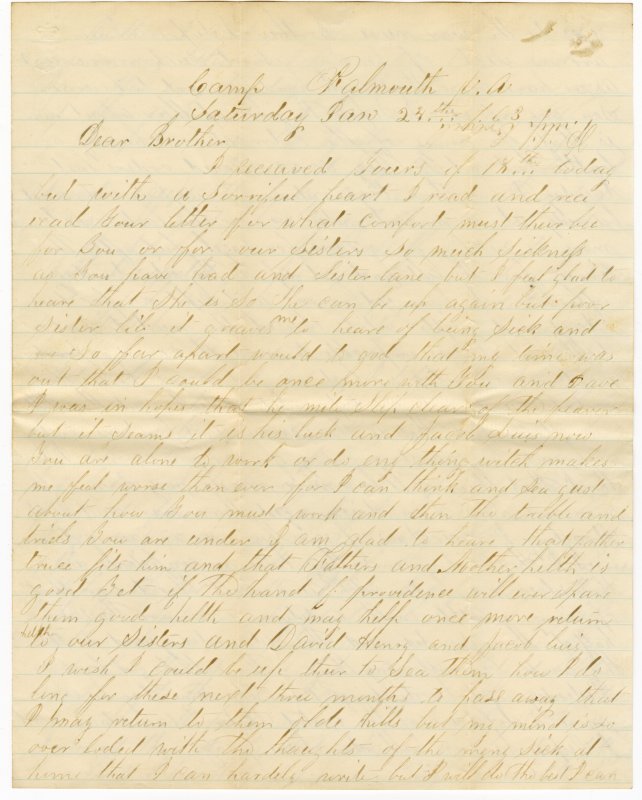 Camp Falmouth V. A
Saturday Jan 24th 1863
Dear Brother
I receaved Yours of 18th today
but with a Sorrifull heart I read and rea
read Your letter for what Comfort must their bee
for You or for our Sisters So much Sickness
as You have had and Sister lane but I feel glad to
heare that She is So She can be up again but poor
Sister lib it greaves me to heare of being Sick and
So far apart would to god that my time was
out that I could be once more with You and Dave
I was in hopes that he mite Slip clear of the feaver
but it Seams it is his luck and Jacob Luis now
You are alone to work or do eny thing witch makes
me feel worse than ever for I can think and Sea gust
about how You must work and then the trible and
trids You are under I am glad to heare that father
truce fits him and that Fathers and Mother helth is
good Yet if the hand of providence will ever Spare
them good helth and may help once more return
helth
to our Sisters and David Henry and Jacob luis
I wish I could be up their to Sea them how I do
long for these next three months to pass away that
I may return to them olde hills but my mind is so
over loded with the thaughts of the mene Sick at
home that I can hardely write but I will do the best I can